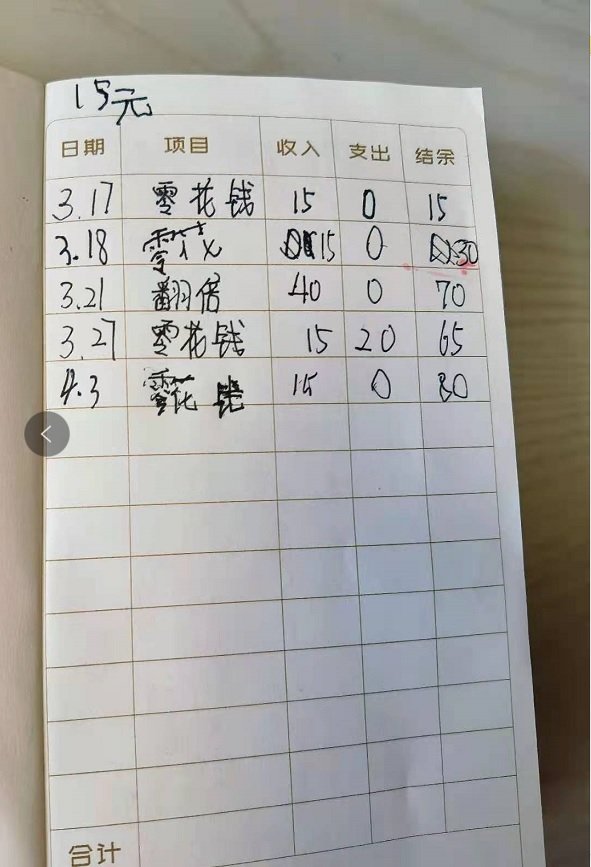 15元
日期 项目 收入 支出 结余
3.17 零花钱 15 0 15
3.18 零花 15 0 30
3.21 翻倍 40 0 70
3.27 零花钱 15 20 65
4.3 零花钱 15 0 80
合计